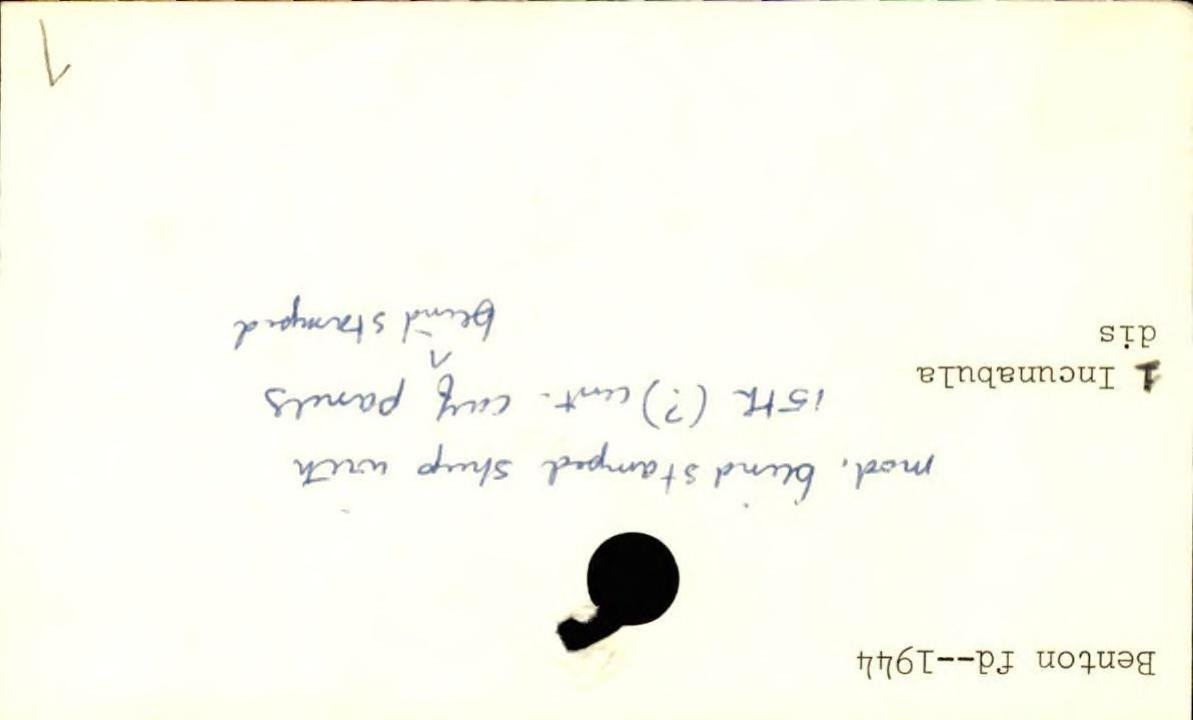 Benton fd--1944
mod. blind stamped sheep with
15th (?) cent. calf ^ panels
blind stamped
1 Incunabula
dis